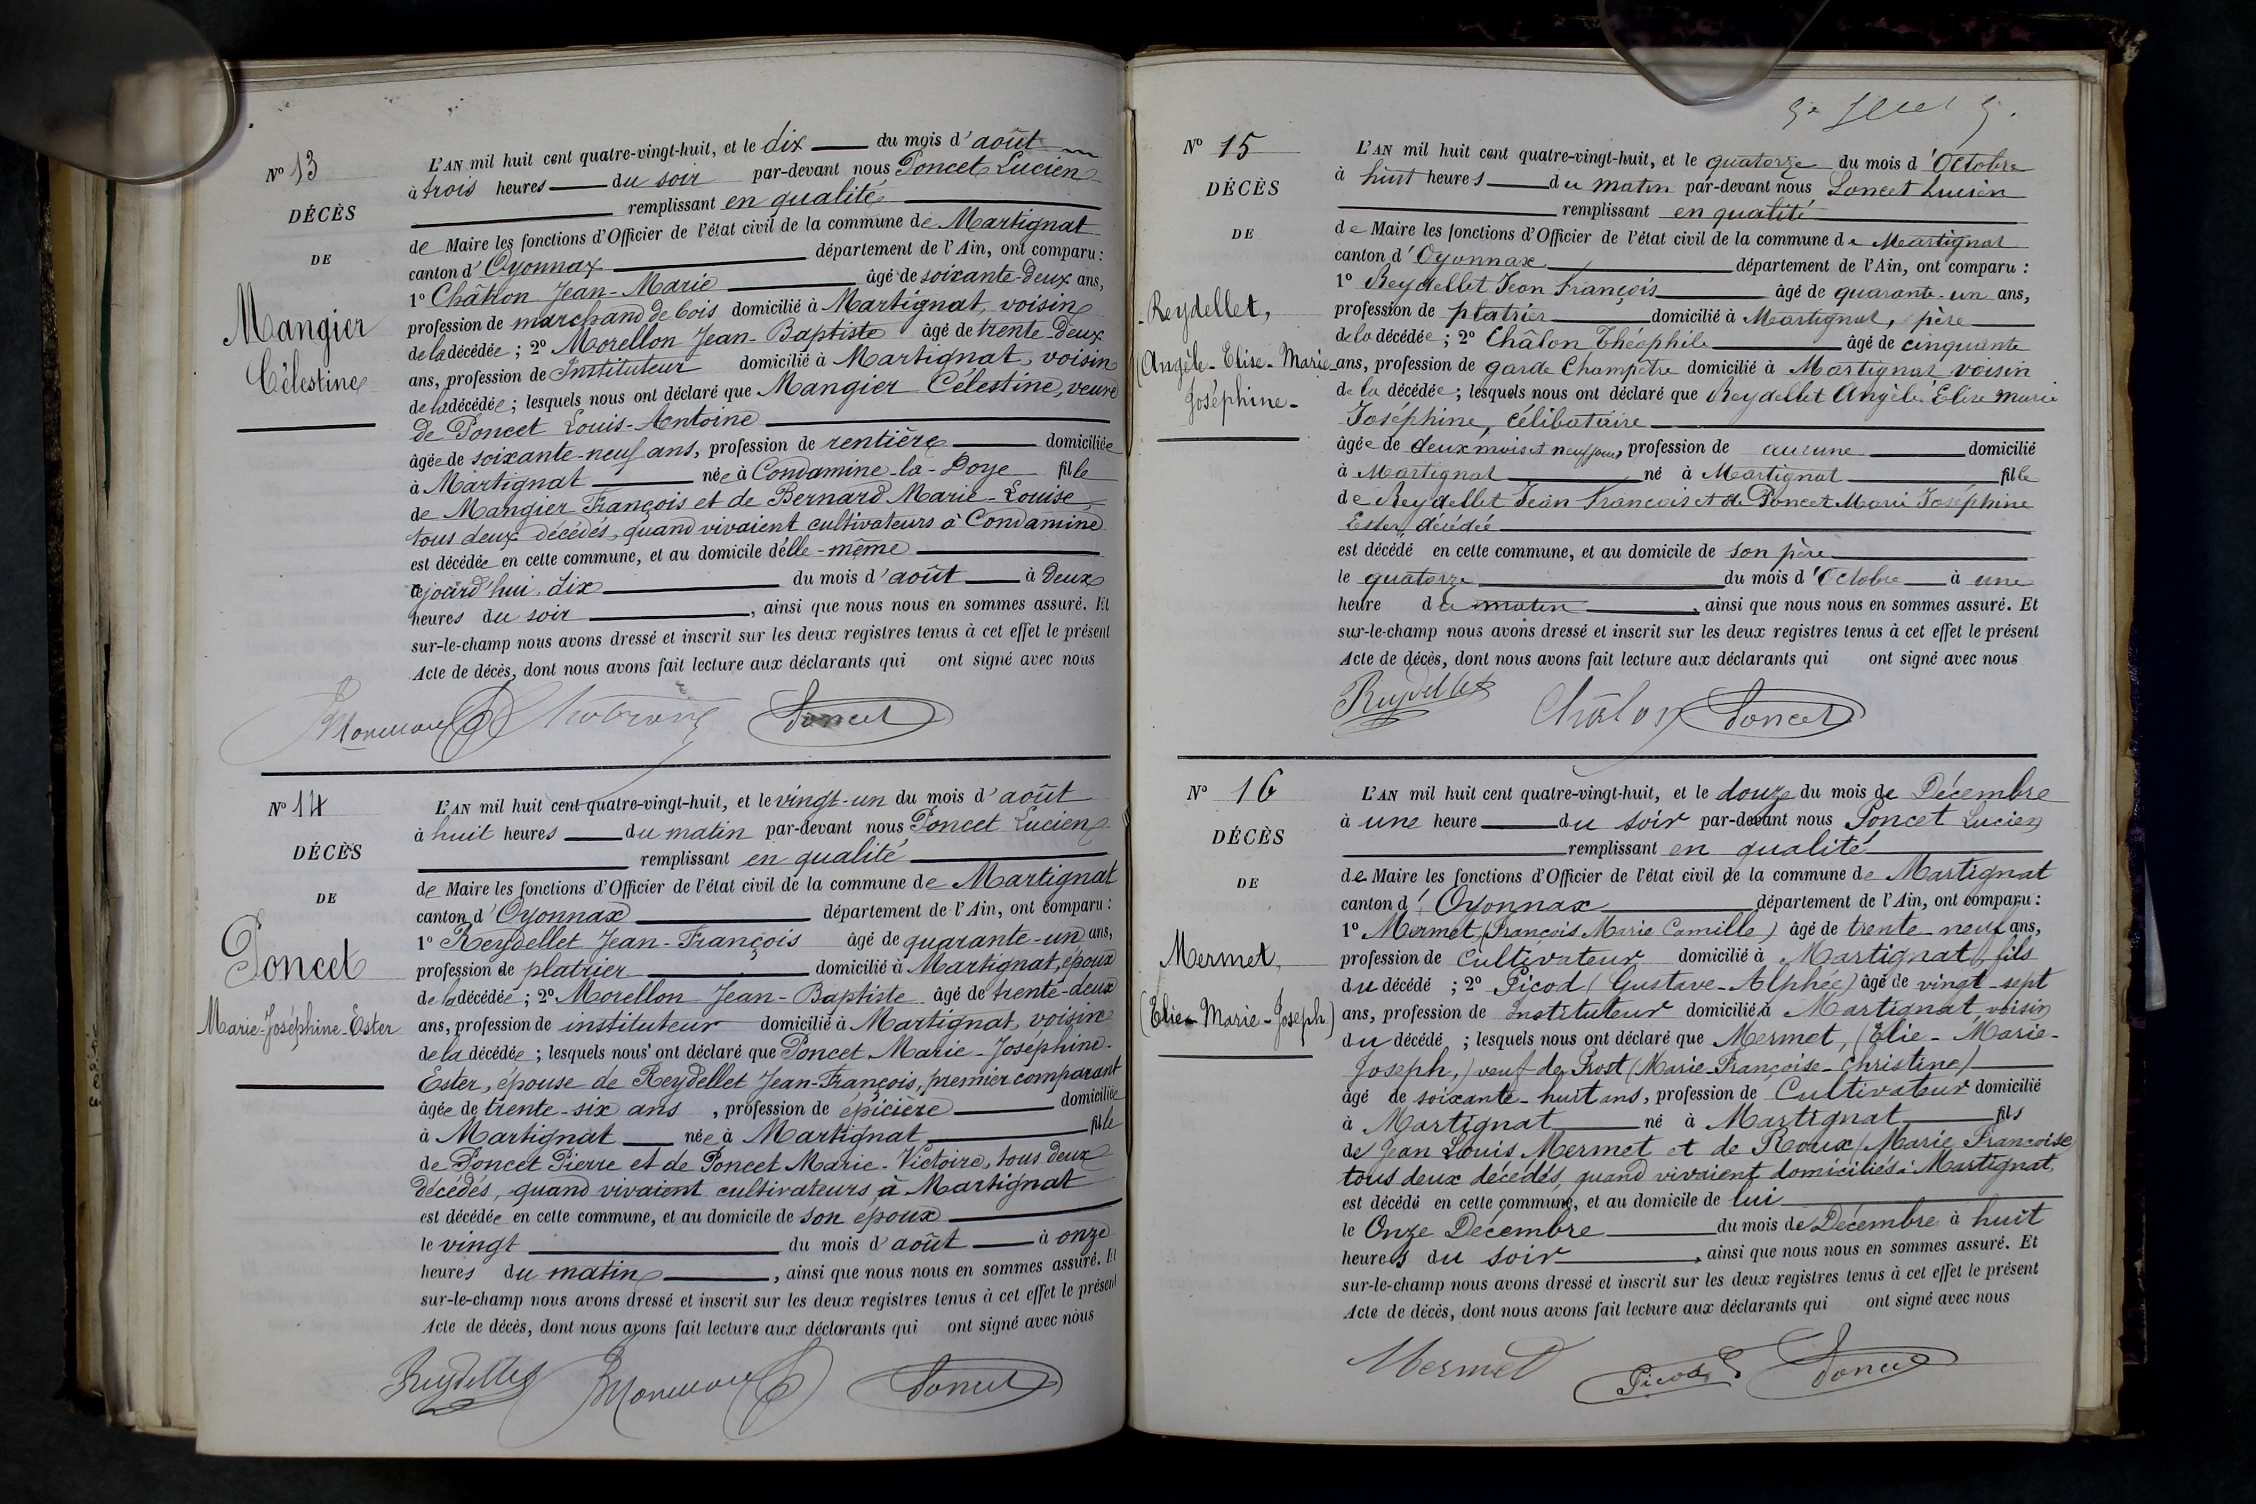 N° 13
DÉCÈS
DE
Mangier
Célestine
L'AN mil huit cent quatre-vingt-huit, et le dix du mois d'août
à trois heures du soir par-devant nous Poncet Lucien
remplissant en qualité
de Maire les fonctions d'Officier de l'état civil de la commune de Martignat
canton d'Oyonnax département de l'Ain, ont comparu :
1° Châtron Jean-Marie âgé de soixante-deux ans,
profession de marchand de bois domicilié à Martignat, voisin
de la décédée ; 2° Morellon Jean-Baptiste âgé de trente-deux
ans, profession de Instituteur domicilié à Martignat, voisin
de la décédée ; lesquels nous ont déclaré que Mangier Célestine, veuve
de Poncet Louis-Antoine
âgée de soixante-neuf ans, profession de rentière domiciliée
à Martignat née à Condamine-la-Doye fille
de Mangier François et de Bernard Marie-Louise,
tous deux décédés, quand vivaient cultivateurs à Condamine
est décédée en cette commune, et au domicile d'elle-même
aujourd'hui dix du mois d'août à deux
heures du soir, ainsi que nous nous en sommes assuré. Et
sur-le-champ nous avons dressé et inscrit sur les deux registres tenus à cet effet le présent
Acte de décès, dont nous avons fait lecture aux déclarants qui ont signé avec nous
Poncet
N° 14
DÉCÈS
DE
Poncet
Marie-Joséphine-Ester
L'AN mil huit cent quatre-vingt-huit, et le vingt-un du mois d'août
à huit heures du matin par-devant nous Poncet Lucien
remplissant en qualité
de Maire les fonctions d'Officier de l'état civil de la commune de Martignat
canton d'Oyonnax département de l'Ain, ont comparu :
1° Reydellet Jean-François âgé de quarante-un ans,
profession de platrier domicilié à Martignat, époux
de la décédée ; 2° Morellon Jean-Baptiste âgé de trente-deux
ans, profession de instituteur domicilié à Martignat, voisin
de la décédée ; lesquels nous ont déclaré que Poncet Marie-Joséphine-
Ester, épouse de Reydellet Jean-François, premier comparant
âgée de trente-six ans, profession de épicière domiciliée
à Martignat née à Martignat fille
de Poncet Pierre et de Poncet Marie-Victoire, tous deux
décédés, quand vivaient cultivateurs à Martignat
est décédée en cette commune, et au domicile de son époux
le vingt du mois d'août à onze
heures du matin, ainsi que nous nous en sommes assuré. Et
sur-le-champ nous avons dressé et inscrit sur les deux registres tenus à cet effet le présent
Acte de décès, dont nous avons fait lecture aux déclarants qui ont signé avec nous
Reydellet Poncet
N° 15
DÉCÈS
DE
Reydellet,
(Angèle-Elise-Marie
Joséphine-
L'AN mil huit cent quatre-vingt-huit, et le quatorze du mois d'Octobre
à huit heures du matin par-devant nous Poncet Lucien
remplissant en qualité
de Maire les fonctions d'Officier de l'état civil de la commune de Martignat
canton d'Oyonnax département de l'Ain, ont comparu :
1° Reydellet Jean François âgé de quarante-un ans,
profession de platrier domicilié à Martignat, père
de la décédée ; 2° Châlon Théophile âgé de cinquante
ans, profession de garde Champêtre domicilié à Martignat voisin
de la décédée ; lesquels nous ont déclaré que Reydellet Angèle Elise Marie
Joséphine, célibataire
âgée de deux mois et neuf jours, profession de aucune domicilié
à Martignat né à Martignat fille
de Reydellet Jean François et de Poncet Marie Joséphine
Ester, décédée
est décédé en cette commune, et au domicile de son père
le quatorze du mois d'Octobre à une
heure du matin, ainsi que nous nous en sommes assuré. Et
sur-le-champ nous avons dressé et inscrit sur les deux registres tenus à cet effet le présent
Acte de décès, dont nous avons fait lecture aux déclarants qui ont signé avec nous
Reydellet Châlon Poncet
N° 16
DÉCÈS
DE
Mermet,
(Elie-Marie-Joseph)
L'AN mil huit cent quatre-vingt-huit, et le douze du mois de Décembre
à une heure du soir par-devant nous Poncet Lucien
remplissant en qualité
de Maire les fonctions d'Officier de l'état civil de la commune de Martignat
canton d'Oyonnax département de l'Ain, ont comparu :
1° Mermet, (François Marie Camille) âgé de trente-neuf ans,
profession de Cultivateur domicilié à Martignat, fils
du décédé ; 2° Picod (Gustave-Alphée) âgé de vingt-sept
ans, profession de Instituteur domicilié à Martignat voisin
du décédé ; lesquels nous ont déclaré que Mermet, (Elie-Marie-
Joseph,) veuf de Prost (Marie-Françoise-Christine)
âgé de soixante-huit ans, profession de Cultivateur domicilié
à Martignat né à Martignat fils
de Jean Louis Mermet et de Roux (Marie Françoise
tous deux décédés, quand vivaient domiciliés à Martignat,
est décédé en cette commune, et au domicile de lui
le Onze Décembre du mois de Décembre à huit
heures du soir, ainsi que nous nous en sommes assuré. Et
sur-le-champ nous avons dressé et inscrit sur les deux registres tenus à cet effet le présent
Acte de décès, dont nous avons fait lecture aux déclarants qui ont signé avec nous
Mermet Picod Poncet